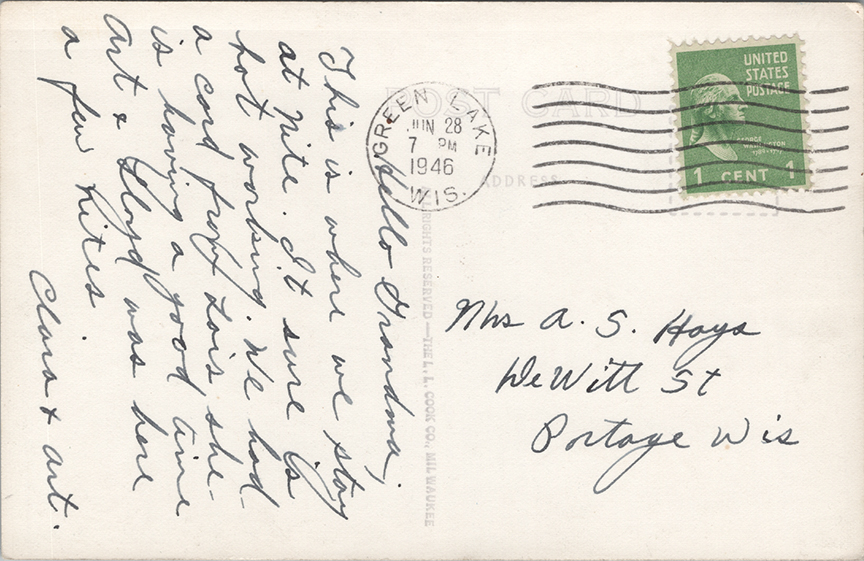 Hello Grandma,
This is where we stay
at nite. It sure is
hot working. We had
a card from Lois she-
is having a good time
Art & Lloyd was here
a few nites.
Clara & Art.
POST CARD
ADDRESS
ALL RIGHTS RESERVED — THE L. L. COOK CO., MILWAUKEE
GREEN LAKE
JUN 28
7 PM
1946
WIS.
UNITED
STATES
POSTAGE
GEORGE
WASHINGTON
1789-1797
1 CENT 1
Mrs A. S. Hays
DeWitt St
Portage Wis